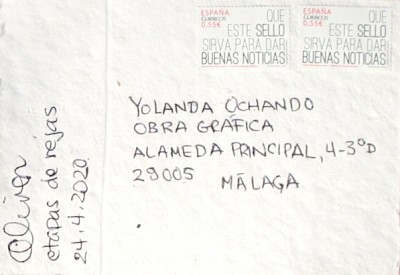 ESPAÑA
CORREOS
0,55€
QUE
ESTE SELLO
SIRVA PARA DAR
BUENAS NOTICIAS
ESPAÑA
CORREOS
0,55€
QUE
ESTE SELLO
SIRVA PARA DAR
BUENAS NOTICIAS
YOLANDA OCHANDO
OBRA GRÁFICA
ALAMEDA PRINCIPAL, 4-3ºD
29005
MÁLAGA
Oliver
etapas de rejas
24.4.2020